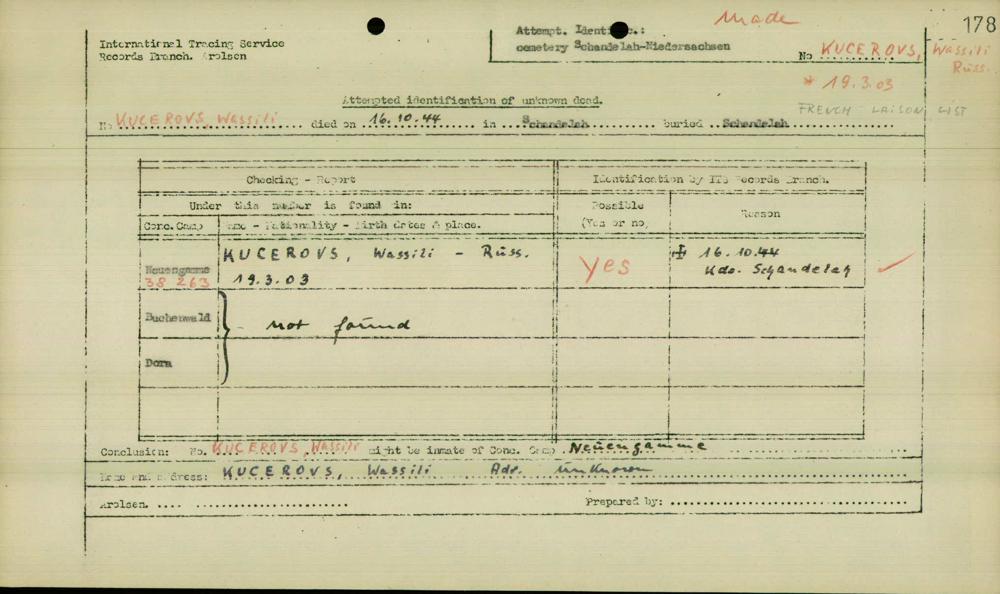 Made
178
International Tracing Service
Records Branch. Arolsen
Attempt. Identific.:
cemetery Schandelah-Niedersachsen
No KUCEROVS, Wassili
Russ.
* 19.3.03
FRENCH LIAISON LIST
Attempted identification of unknown dead.
No KUCEROVS, Wassili died on 16.10.44 in Schandelah buried Schandelah
Checking - Report
Identification by ITS Records Branch.
Under this number is found in:
Possible
(Yes or no)
Reason
Conc. Camp
Name - Nationality - Birth dates & place.
Neuengamme
38 263
KUCEROVS, Wassili - Russ.
19.3.03
Yes
16.10.44
Kdo. Schandelah
Buchenwald
Dora
- not found
Conclusion: No. KUCEROVS, Wassili might be inmate of Conc. Camp Neuengamme
Name and address: KUCEROVS, Wassili Adr. unknown
Arolsen.
Prepared by: